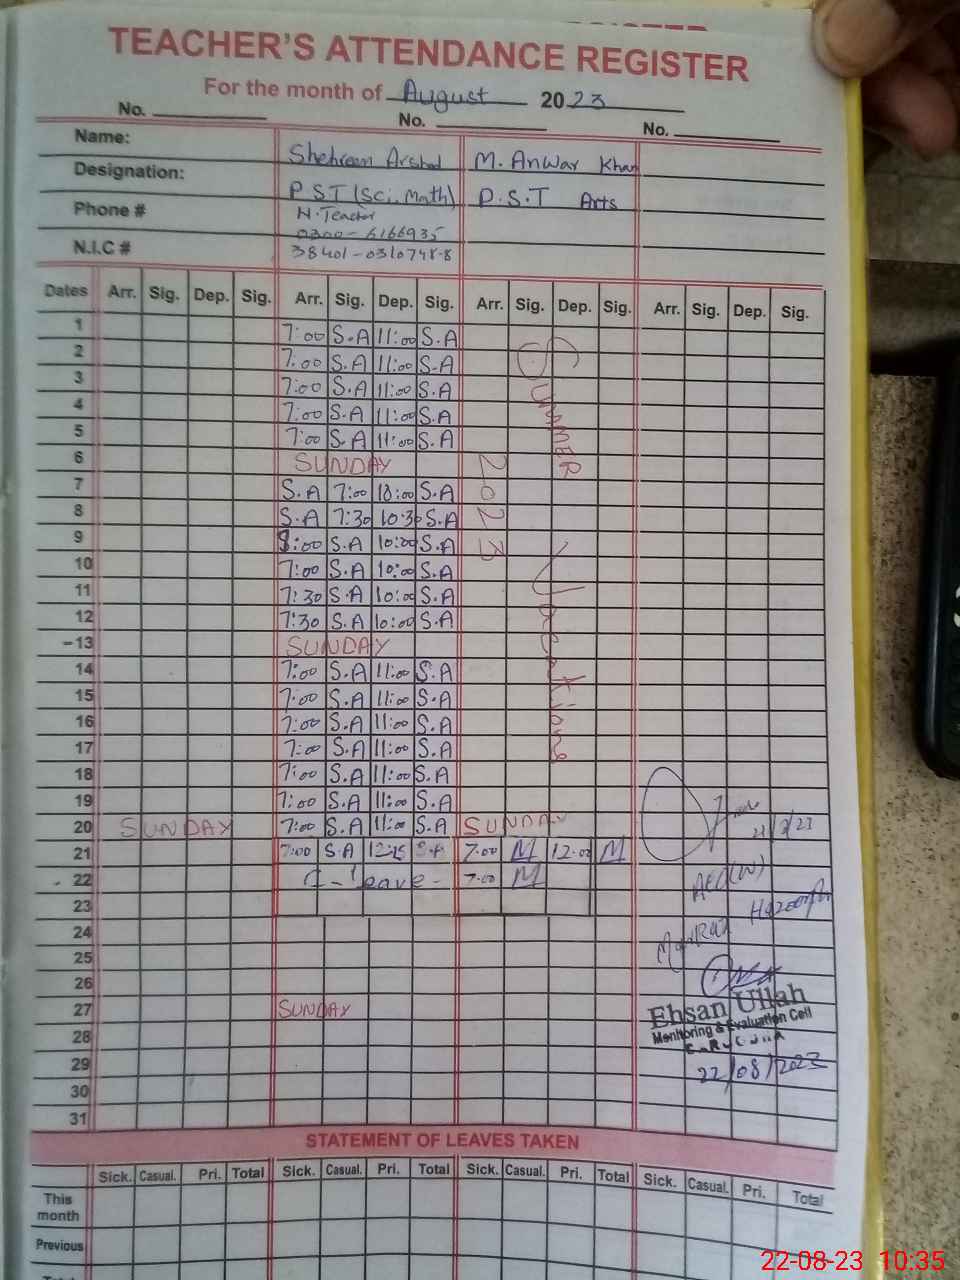 TEACHER'S ATTENDANCE REGISTER
For the month of August 2023
No. No. No.
Name: Shehreen Arshad M. Anwar Khan
Designation: P.S.T (Sci. Math) P.S.T Arts
H. Teacher
Phone # 0300-6166935
N.I.C # 38401-0310748-8
Dates Arr. Sig. Dep. Sig. Arr. Sig. Dep. Sig. Arr. Sig. Dep. Sig. Arr. Sig. Dep. Sig.
1 7:00 S.A 11:00 S.A
2 7:00 S.A 11:00 S.A
3 7:00 S.A 11:00 S.A
4 7:00 S.A 11:00 S.A
5 7:00 S.A 11:00 S.A
6 SUNDAY
7 S.A 7:00 10:00 S.A
8 S.A 7:30 10:30 S.A
9 8:00 S.A 10:00 S.A
10 7:00 S.A 10:00 S.A
11 7:30 S.A 10:00 S.A
12 7:30 S.A 10:00 S.A
13 SUNDAY
14 7:00 S.A 11:00 S.A
15 7:00 S.A 11:00 S.A
16 7:00 S.A 11:00 S.A
17 7:00 S.A 11:00 S.A
18 7:00 S.A 11:00 S.A
19 7:00 S.A 11:00 S.A
Summer Vacations
2023
20 SUNDAY 7:00 S.A 11:00 S.A SUNDAY
21 7:00 S.A 12:15 S.A 7:00 M 12:00 M
22 leave 7:00 M
23
24
25
26
27 SUNDAY
28
29
30
31
AEO(W)
Ehsan Ullah
Monitoring & Evaluation Cell
22/08/2023
STATEMENT OF LEAVES TAKEN
Sick. Casual. Pri. Total Sick. Casual. Pri. Total Sick. Casual. Pri. Total Sick. Casual. Pri. Total
This month
Previous
22-08-23 10:35